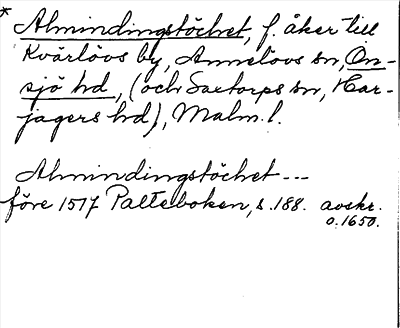 * Almindingstöchet, f. åker till
Kvärlövs by, Annelövs sn, On-
sjö hd, (och Saxtorps sn, Har-
jagers hd), Malm. l.
Almindingstöchet ---
före 1517 Palteboken, s. 188. avskr.
o. 1650.